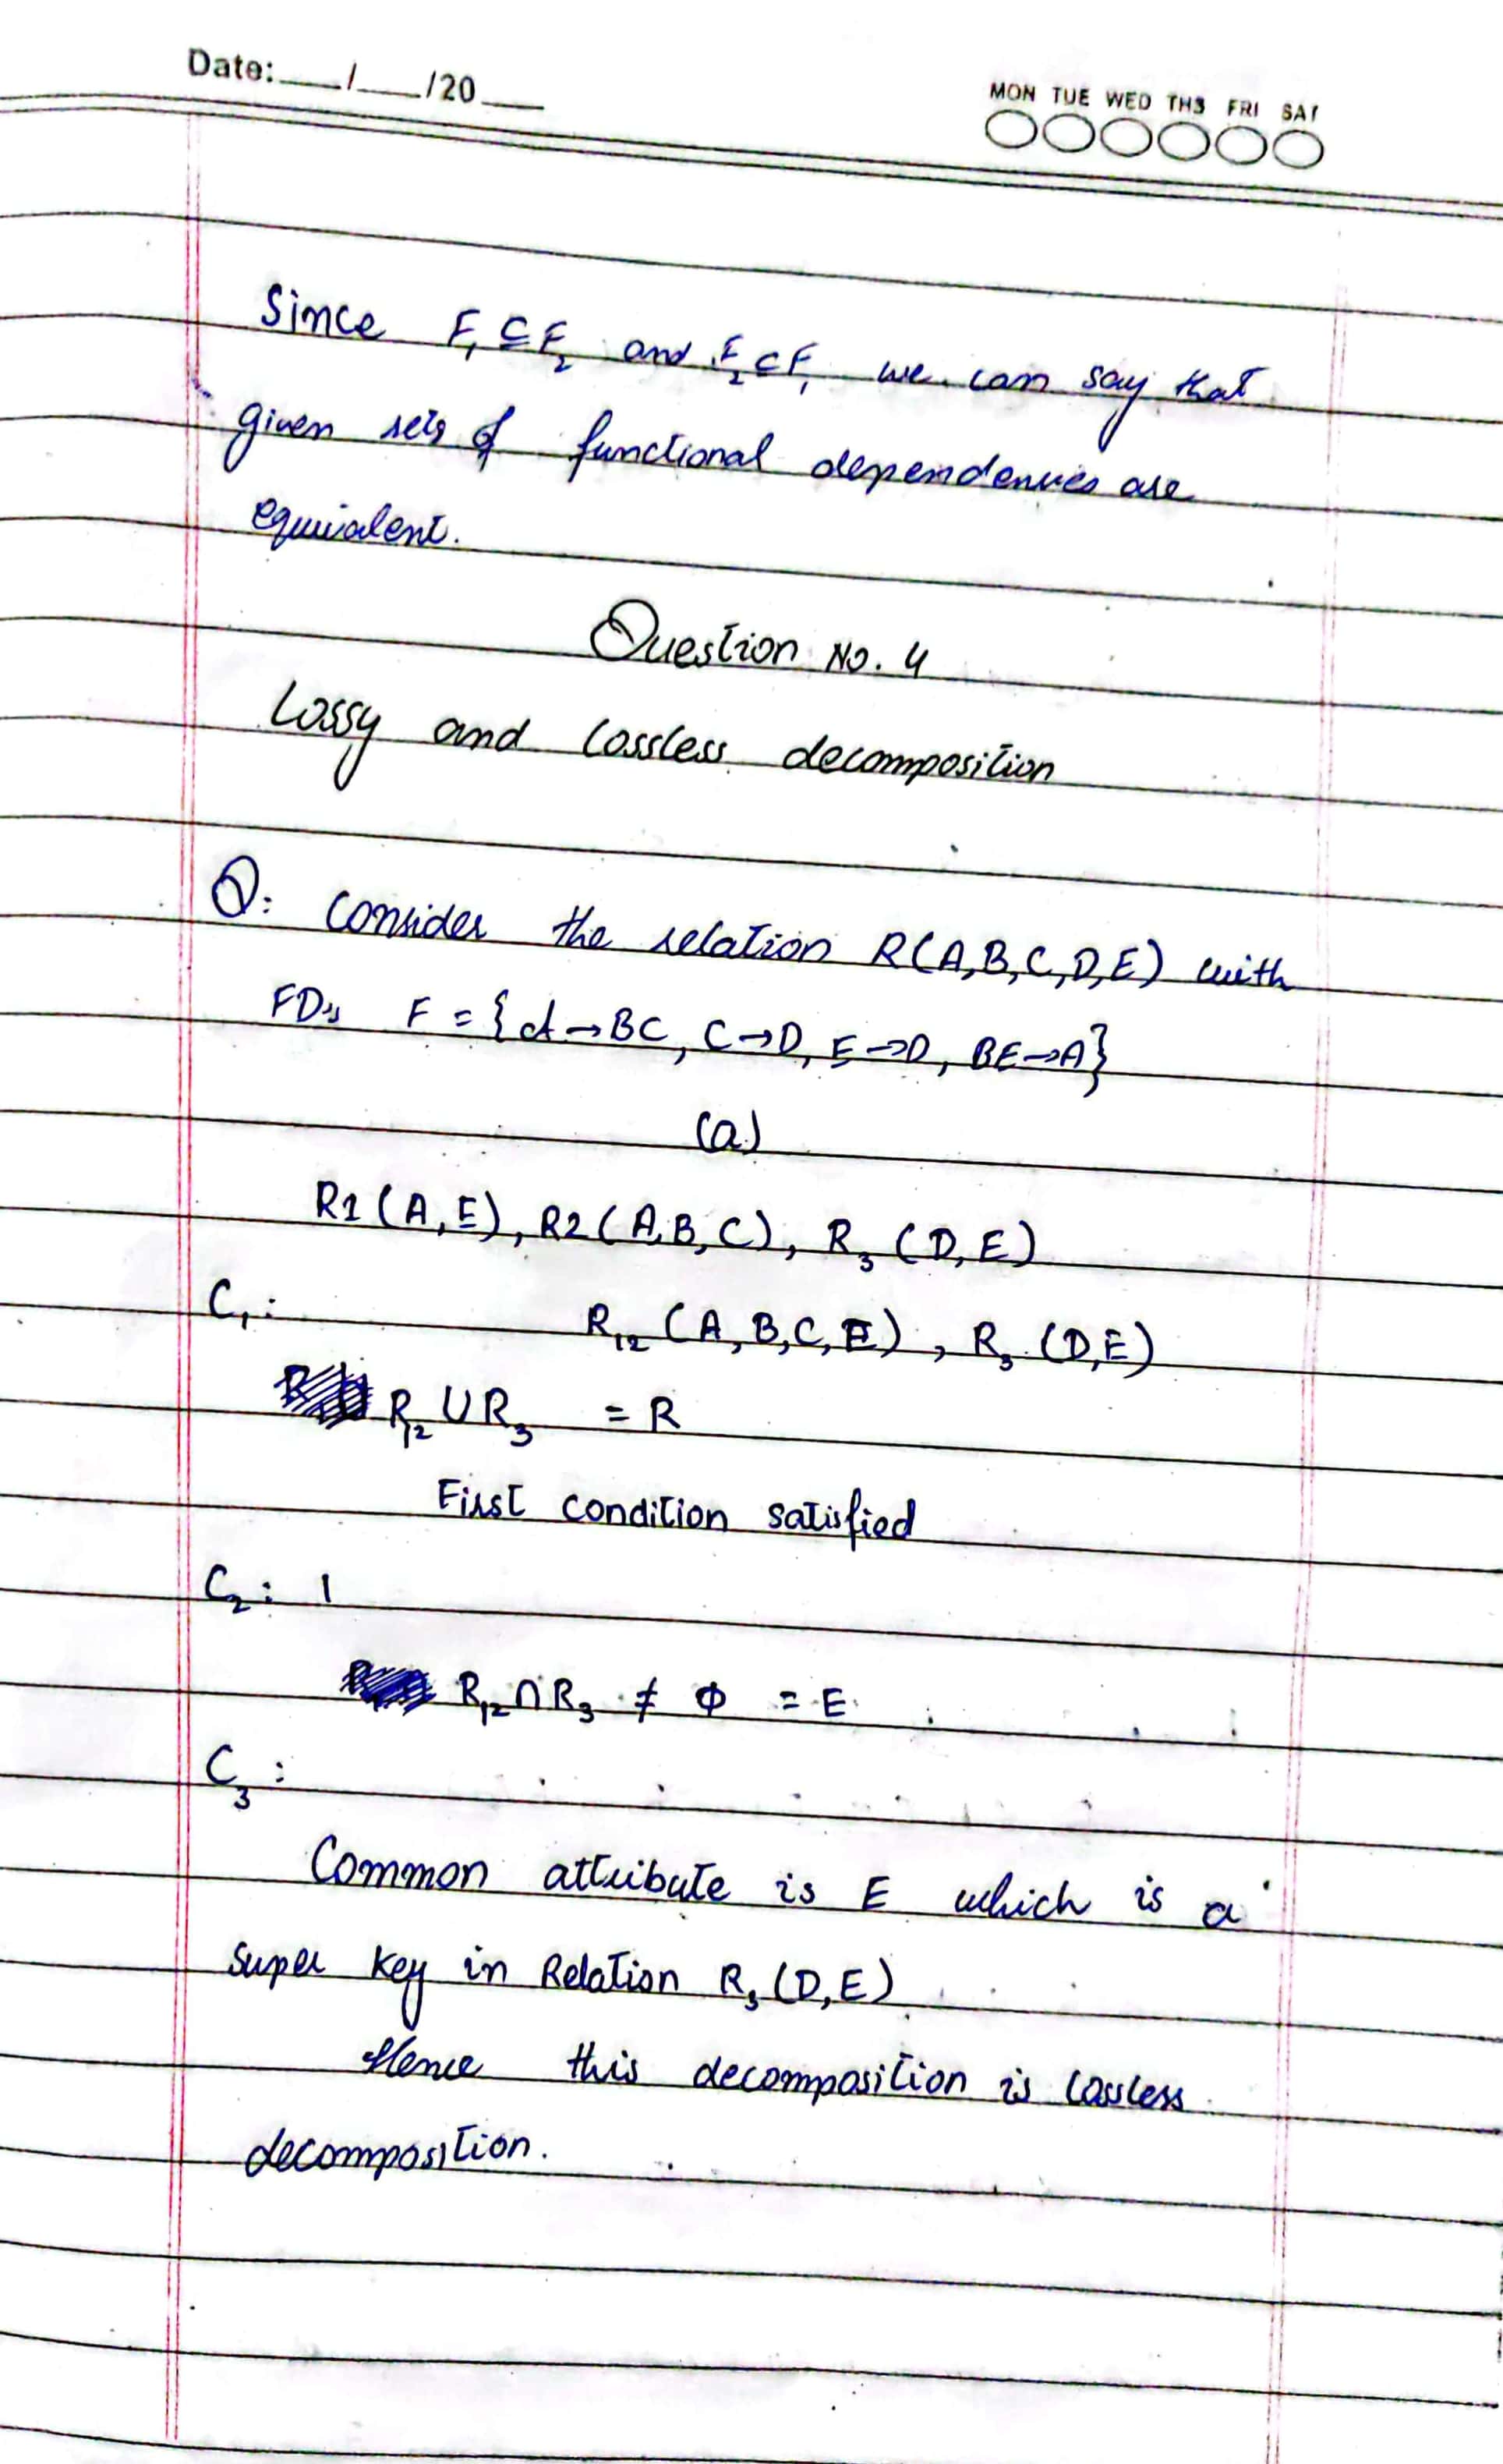 Date:___/___/20___
MON TUE WED THS FRI SAT
Since F₁ ⊆ F₂ and F₂ ⊂ F₁ we can say that
given sets of functional dependencies are
equivalent.
Question No. 4
Lossy and lossless decomposition
Q: Consider the relation R(A,B,C,D,E) with
FDs F = {A→BC, C→D, E→D, BE→A}
(a)
R1(A,E), R2(A,B,C), R₃(D,E)
C₁: R₁₂(A,B,C,E), R₃(D,E)
R₁₂ ∪ R₃ = R
First condition satisfied
C₂: 1
R₁₂ ∩ R₃ ≠ Φ = E
C₃:
Common attribute is E which is a
super key in Relation R₃(D,E)
Hence this decomposition is lossless
decomposition.